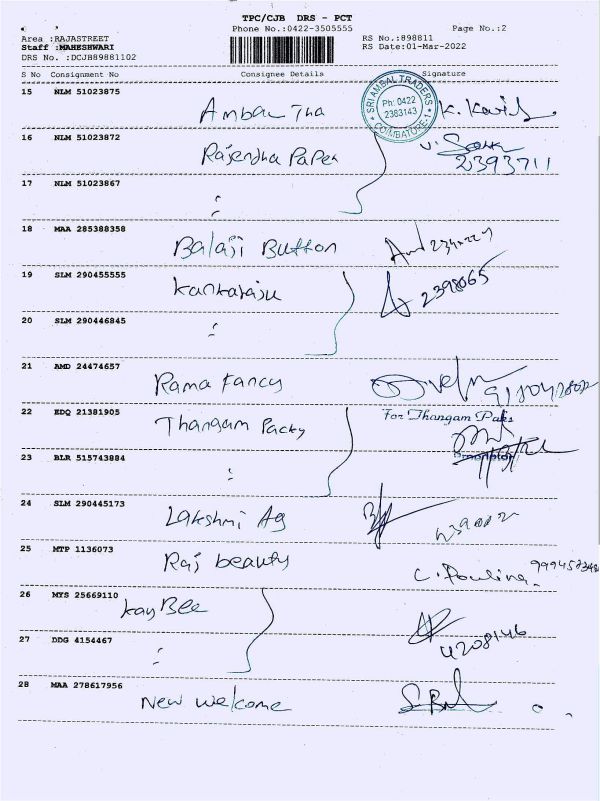 TPC/CJB DRS - PCT
Area :RAJASTREET Phone No.:0422-3505555 Page No.:2
Staff :MAHESHWARI RS No.:898811
DRS No. :DCJB89881102 RS Date:01-Mar-2022
S No Consignment No Consignee Details Signature
15 NLM 51023875
Ambal Tha K. Kavi
SRI AMBAL TRADERS
Ph: 0422
2383143
COIMBATORE-1
16 NLM 51023872
Rajendha Paper 2393711
17 NLM 51023867
"
18 MAA 285388358
Balaji Button
19 SLM 290455555
Kankaraju 2398065
20 SLM 290446845
"
21 AMD 24474657
Rama Fancy
22 EDQ 21381905
Thangam Packy For Thangam Paks
23 BLR 515743884
"
24 SLM 290445173
Lakshmi Ag
25 MTP 1136073
Raj beauty C. Paulina
26 MYS 25669110
Kay Bee
27 DDG 4154467
" 4208146
28 MAA 278617956
New welcome